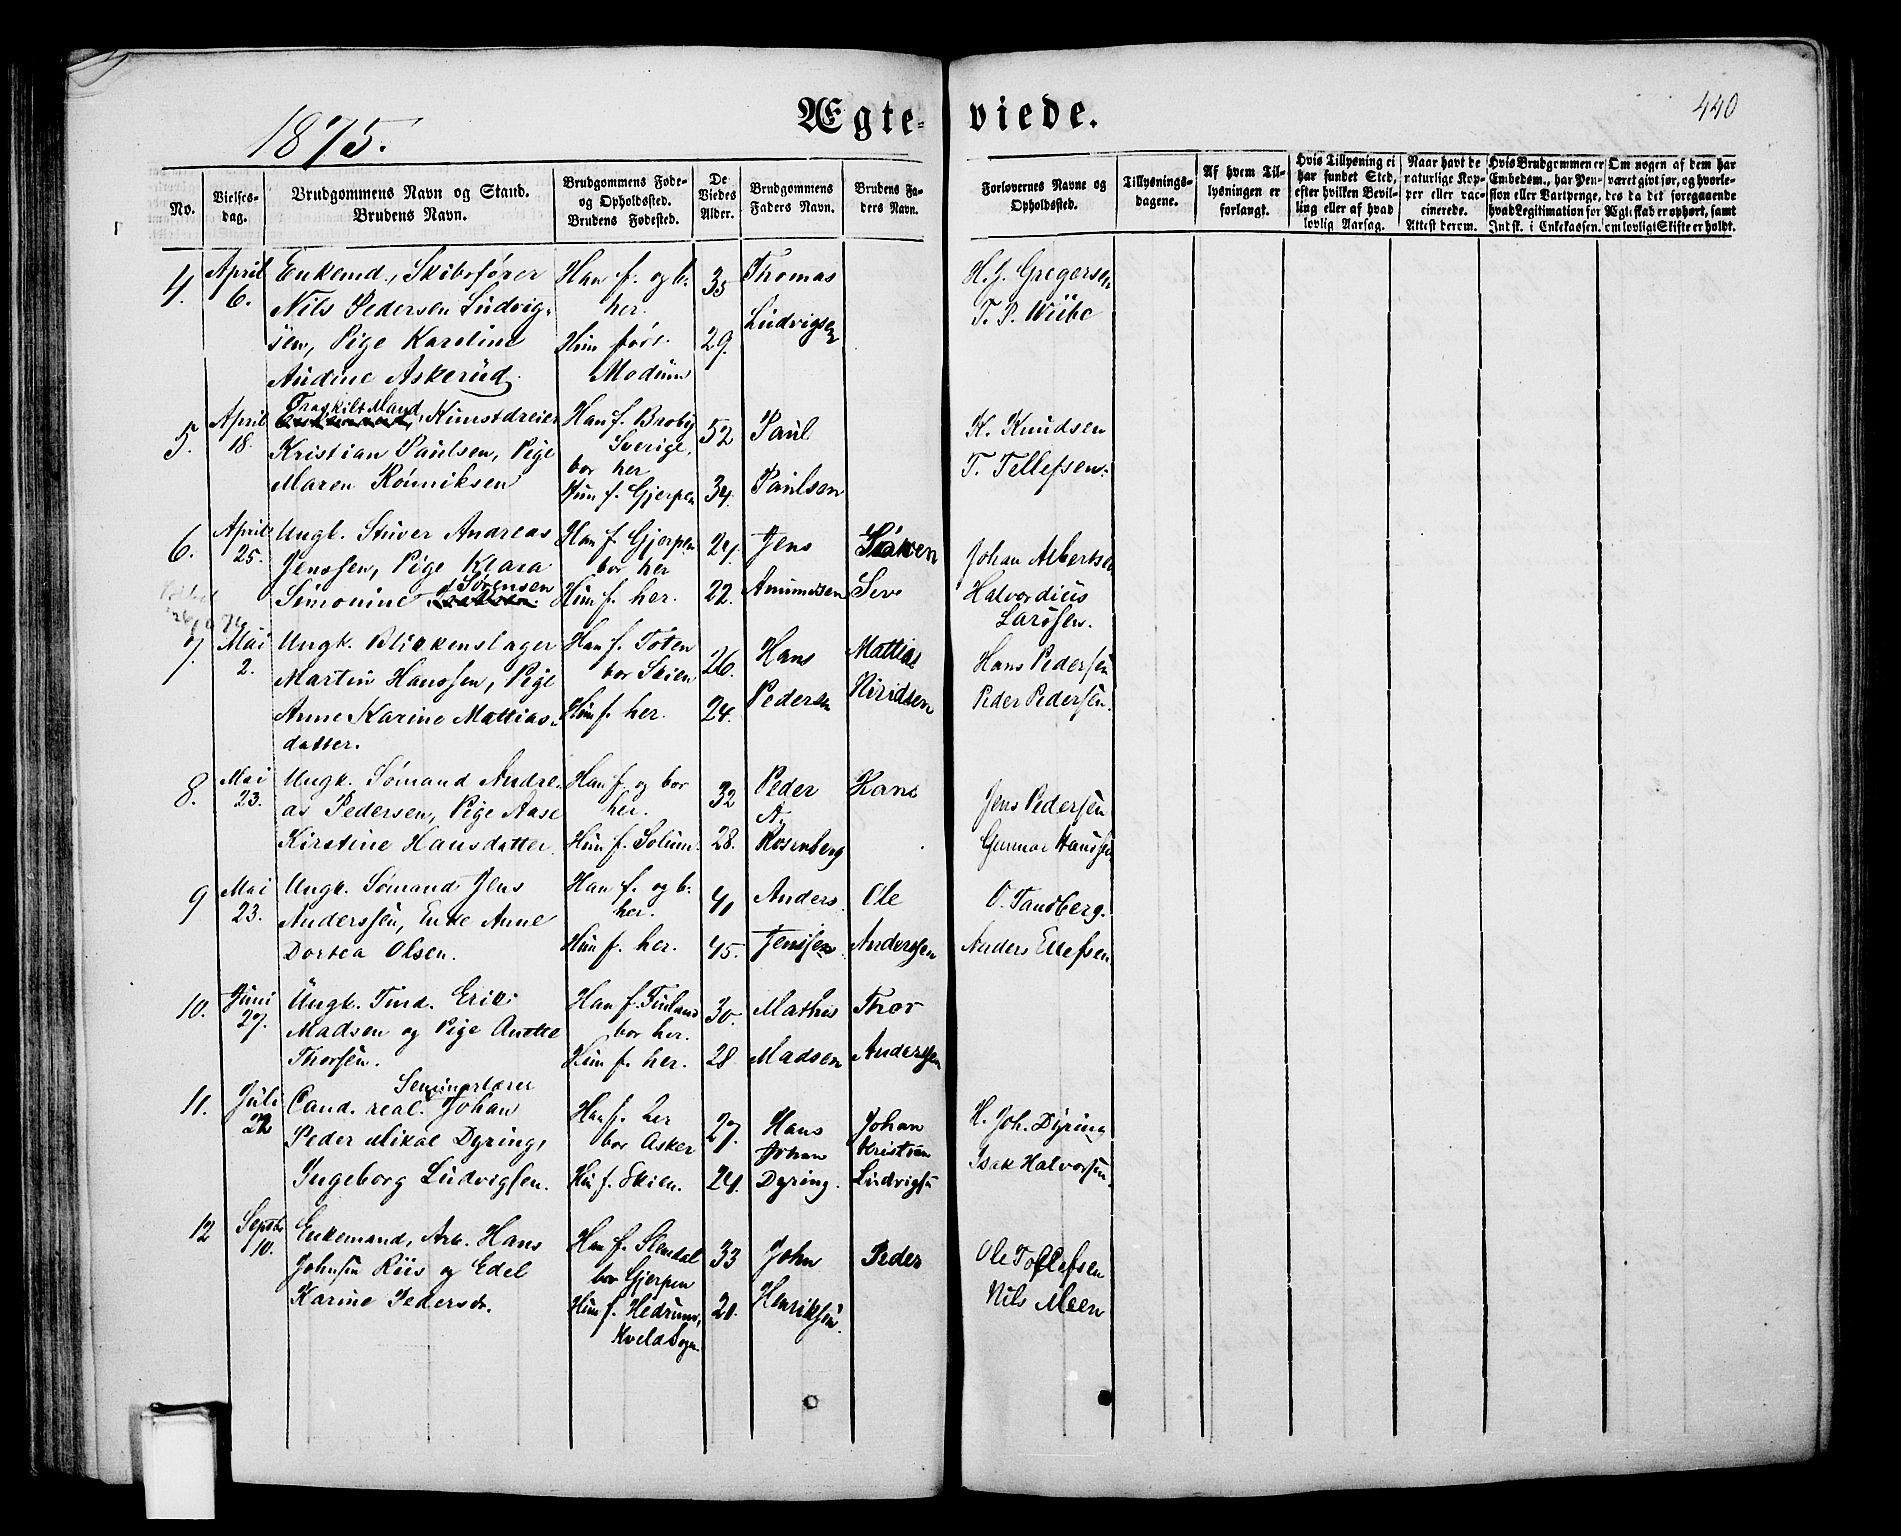 1875.
Ægteviede.
440
No.
Vielses-
dag.
Brudgommens Navn og Stand.
Brudens Navn.
Brudgommens Føde-
og Opholdssted.
Brudens Fødested.
De
Viedes
Alder.
Brudgommens
Faders Navn.
Brudens Fa-
ders Navn.
Forlovernes Navne og
Opholdssted.
Tillysnings-
dagene.
Af hvem Til-
lysningen er
forlangt.
Hvis Tillysning ei
har fundet Sted,
efter hvilken Bevil-
ling eller af hvad
lovlig Aarsag.
Naar havt de
naturlige Kop-
per eller vac-
cinerede.
Attest derom.
Hvis Brudgommen er
Embedsm., har Pen-
sion eller Vartpenge,
hvad Legitimation for
Indsk. i Enkekassen.
Om nogen af dem har
været gift før, og hvorle-
des da det foregaaende
Ægteskab er ophørt, samt
om lovligt Skifte er holdt.
4.
April
6.
Enkemd., Skibsfører
Nils Pedersen Ludvig-
sen, Pige Karoline
Audine Askerud
Han f. og b.
her.
Hun født
Modum
35
29.
Thomas
Ludvigsen
H. J. Gregersen
T. P. Wiibe
5.
April
18.
Fraskilt Mand
Kunstdreier
Kristian Paulsen, Pige
Maren Rønniksen
Han f. Broby
Sverige,
bor her
Hun f. Gjerpen
52
34.
Paul
Paulsen
K. Knudsen
T. Tellefsen.
6.
April
25.
Ungk. Stuver Andreas
Jenssen, Pige Klara
Simonine Sørensen
Han f. Gjerpen
bor her
Hun f. her.
24.
22.
Jens
Amundsen
Søren
Johan Albertsen
Halvordius
Larssen.
7.
Mai
2.
Ungk. Blikkenslager
Martin Hanssen, Pige
Anne Karine Mattias-
datter.
Han f. Toten
bor Skien
Hun f. her.
26.
24.
Hans
Pedersen
Mattias
Niridsen
Hans Pedersen
Peder Pedersen.
8.
Mai
23.
Ungk. Sømand Andre-
as Pedersen, Pige Aase
Kirstine Hansdatter
Han f. og bor
her.
Hun f. Solum.
32
28.
Peder
A.
Rosenberg
Hans
Jens Pedersen
Gunnar Hanssen
9
Mai
23.
Ungk. Sømand Jens
Anderssen, Enke Anne
Dortea Olsen.
Han f. og b.
her.
Hun f. her.
41
45.
Anders
Jenssen
Ole
Anderssen
O. Tandberg.
Anders Ellefsen
10.
Juni
27.
Ungk. Tind. Erik
Madsen og Pige Anette
Thorsen.
Han f. Finland
bor her.
Hun f. her.
30.
28
Mathis
Madsen
Thor
Anderssen
11.
Juli
22
Seminarlærer
Cand. real. Johan
Peder Mikal Dyring,
Ingeborg Ludvigsen.
Han f. her
bor Asker
Hun f. Skien.
27.
24.
Hans
Johan
Dyring.
Johan
Kristian
Ludvigsen
H. Joh. Dyring
Isak Halvorsen.
12
Septbr
10.
Enkemand, Arb. Hans
Johnsen Riis og Edel
Karine Pedersdr.
Han f. Slendal
bor Gjerpen
Hun f. Hedrum,
Kvelds Sogn
33
21.
John
Henriksen.
Peder
Ole Tollefsen
Nils Meen